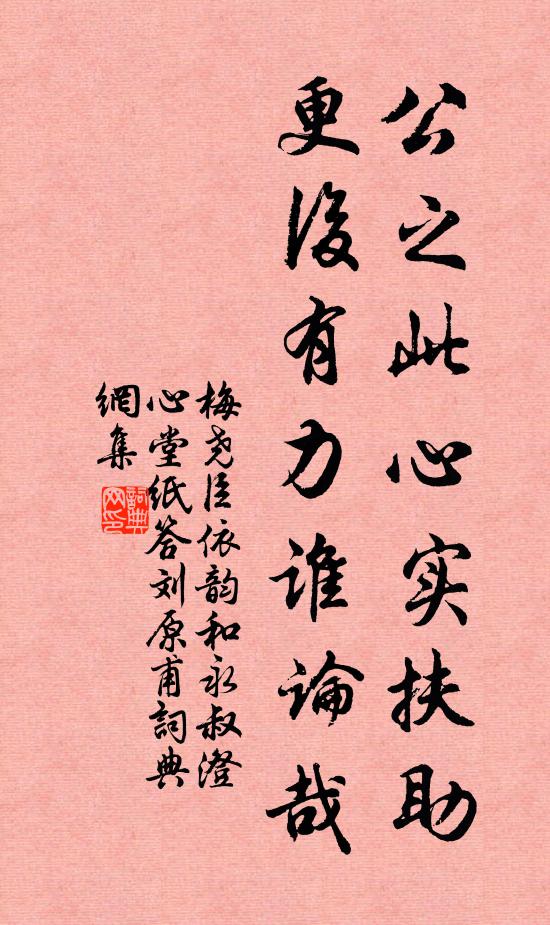 公之此心实扶助
更後有力誰論哉
梅尧臣依韵和永叔澄
心堂紙答刘原甫詞典
網集
詞典网印